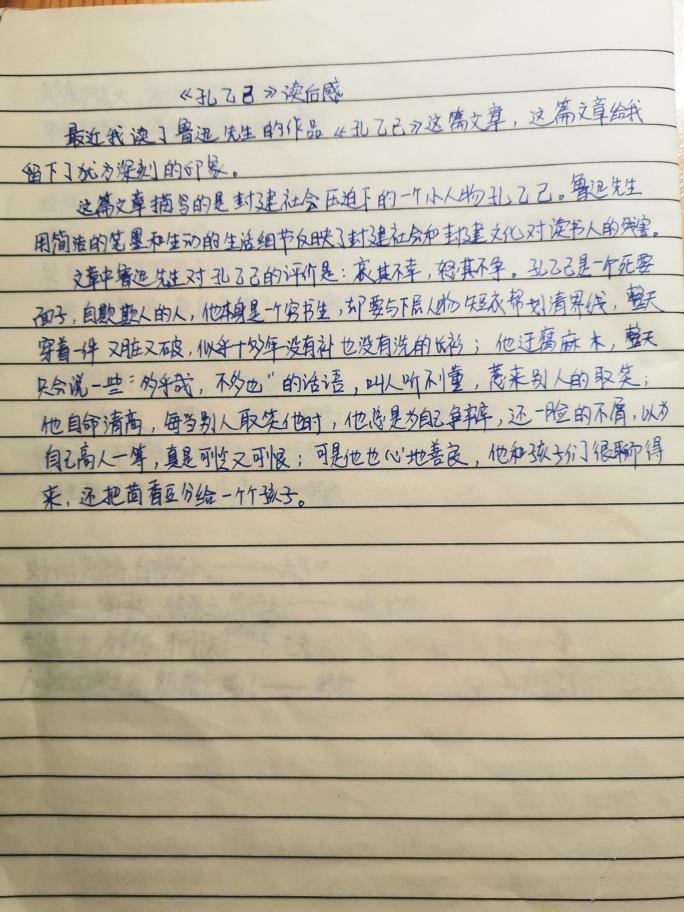 《孔乙己》读后感
最近我读了鲁迅先生的作品《孔乙己》这篇文章，这篇文章给我
留下了犹为深刻的印象。
这篇文章描写的是封建社会压迫下的一个小人物孔乙己。鲁迅先生
用简洁的笔墨和生动的生活细节反映了封建社会和封建文化对读书人的残害。
文章中鲁迅先生对孔乙己的评价是：哀其不幸，怒其不争。孔乙己是一个死要
面子，自欺欺人的人，他本身是一个穷书生，却要与下层人物短衣帮划清界线，整天
穿着一件又脏又破，似乎十多年没有补也没有洗的长衫；他迂腐麻木，整天
只会说一些“多乎哉，不多也”的话语，叫人听不懂，惹来别人的取笑；
他自命清高，每当别人取笑他时，他总是为自己争辩，还一脸的不屑，以为
自己高人一等，真是可怜又可恨；可是他也心地善良，他和孩子们很聊得
来，还把茴香豆分给一个个孩子。